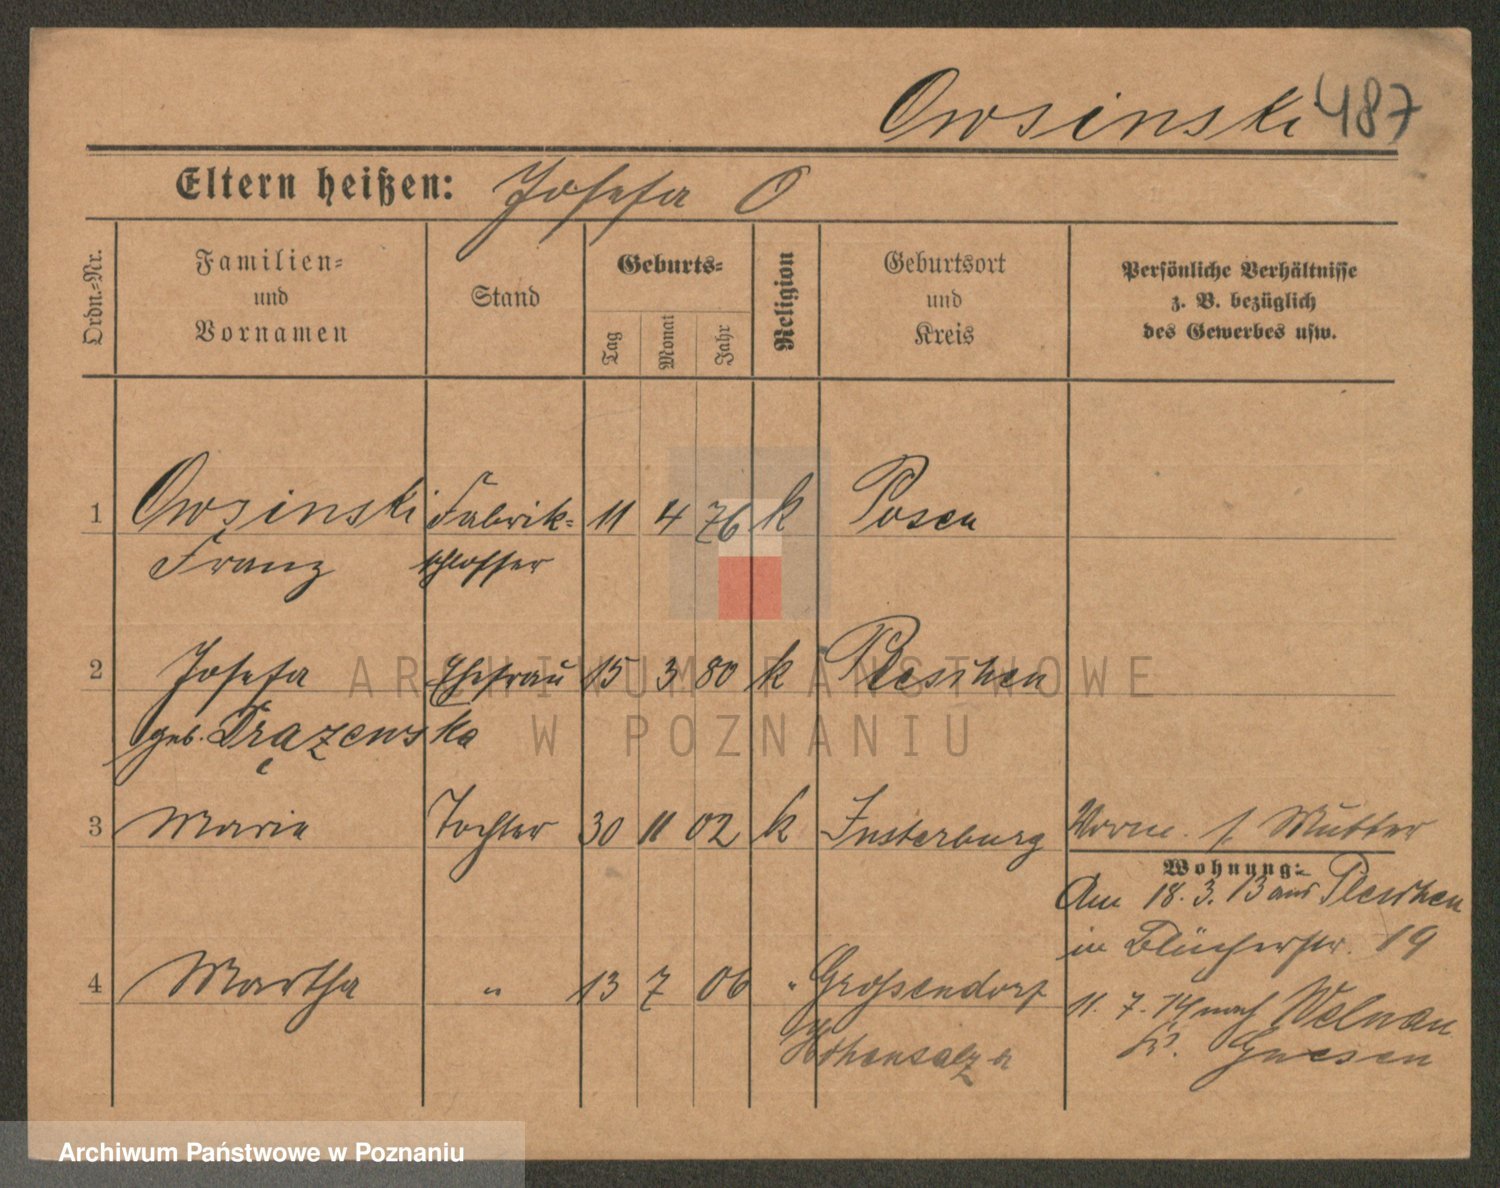 Owsinski 487
Eltern heißen: Josefa O
Ordn.-Nr.
Familien-
und
Vornamen
Stand
Geburts-
Tag
Monat
Jahr
Religion
Geburtsort
und
Kreis
Persönliche Verhältnisse
z. B. bezüglich
des Gewerbes usw.
1 Owsinski Fabrik- 11 4 76 k Posen
Franz schlosser
2 Josefa Ehefrau 15 3 80 k Pleschen
geb. Drązewska
3 Marie Tochter 30 11 02 k Insterburg
Vorm. s. Mutter
Wohnung:
Am 18.3.13 aus Pleschen
in Blücherstr. 19
4 Martha " 13 7 06 " Grossendorf
Hohensalza
11.7.14 nach Welnau
Kr. Gnesen
ARCHIWUM PAŃSTWOWE
W POZNANIU
Archiwum Państwowe w Poznaniu